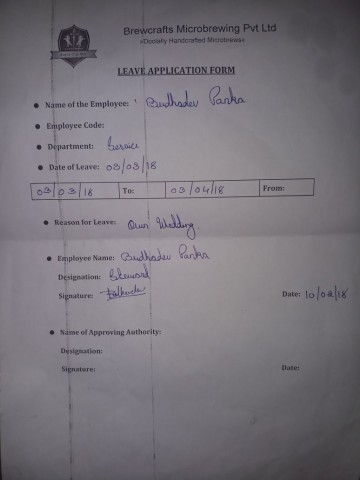 Brewcrafts Microbrewing Pvt Ltd
«Docially Handcrafted Microbrews»
LEAVE APPLICATION FORM
Name of the Employee: Budhadev Parka
Employee Code:
Department: Service
Date of Leave: 03/03/18
03/03/18 To: 03/04/18 From:
Reason for Leave: Own Wedding
Employee Name: Budhadev Parka
Designation: Steward
Signature:
Date: 10/02/18
Name of Approving Authority:
Designation:
Signature: Date: